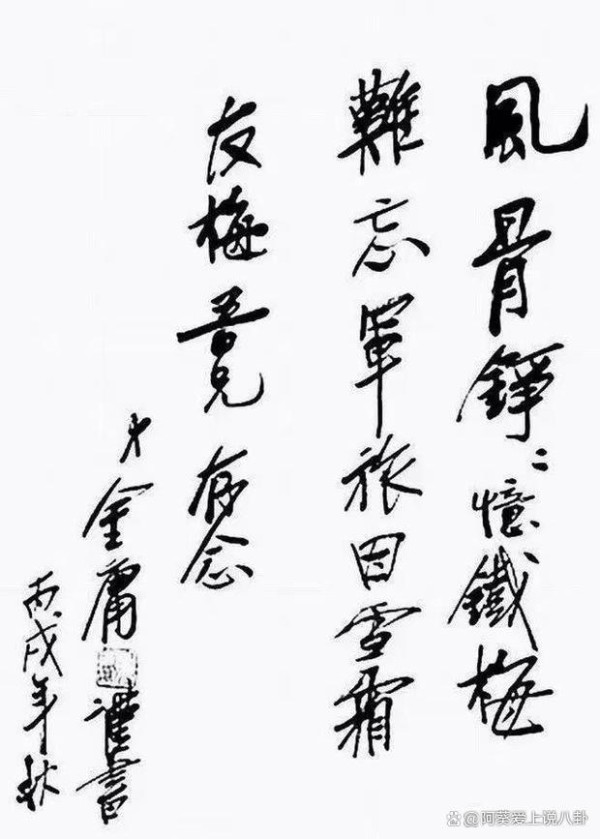 風骨錚々憶鐵梅
難忘軍旅日雪霜
友梅吾兄存念
弟金庸謹書
丙戌年秋
@阿葵爱上说八卦